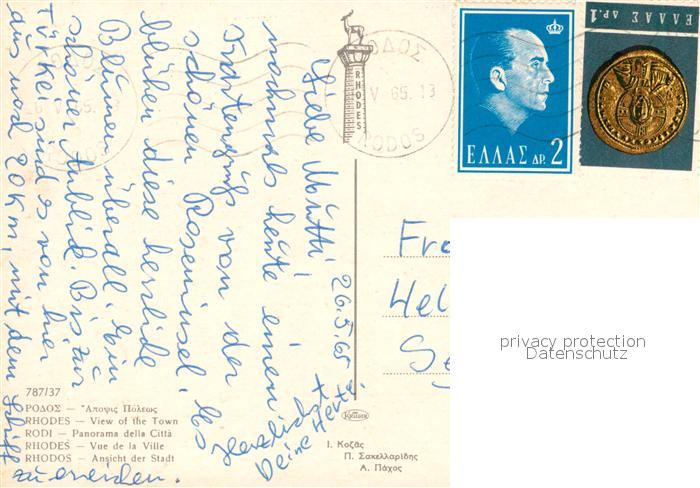 26.5.65
Liebe Mutti!
nochmals heute einen
Kartengruß von der
schönen Roseninsel. Es
blühen diese herrliche
Blumen überall, ein
schöner Anblick. Bis zur
Türkei sind es von hier
aus nod 20 km, mit dem Schiff
zu erreichen.
Herzlichst
Deine Herta.
RHODES
V 65. 13
ΡΟΔΟΣ
RODOS
V 65
ΕΛΛΑΣ ΔΡ. 2
ΕΛΛΑΣ ΔΡ. 1
Fr
Hel
Se
privacy protection
Datenschutz
787/37
ΡΟΔΟΣ — Ἄποψις Πόλεως
RHODES — View of the Town
RODI — Panorama della Città
RHODES — Vue de la Ville
RHODOS — Ansicht der Stadt
Ι. Κοζᾶς
Π. Σακελλαρίδης
Α. Πάχος